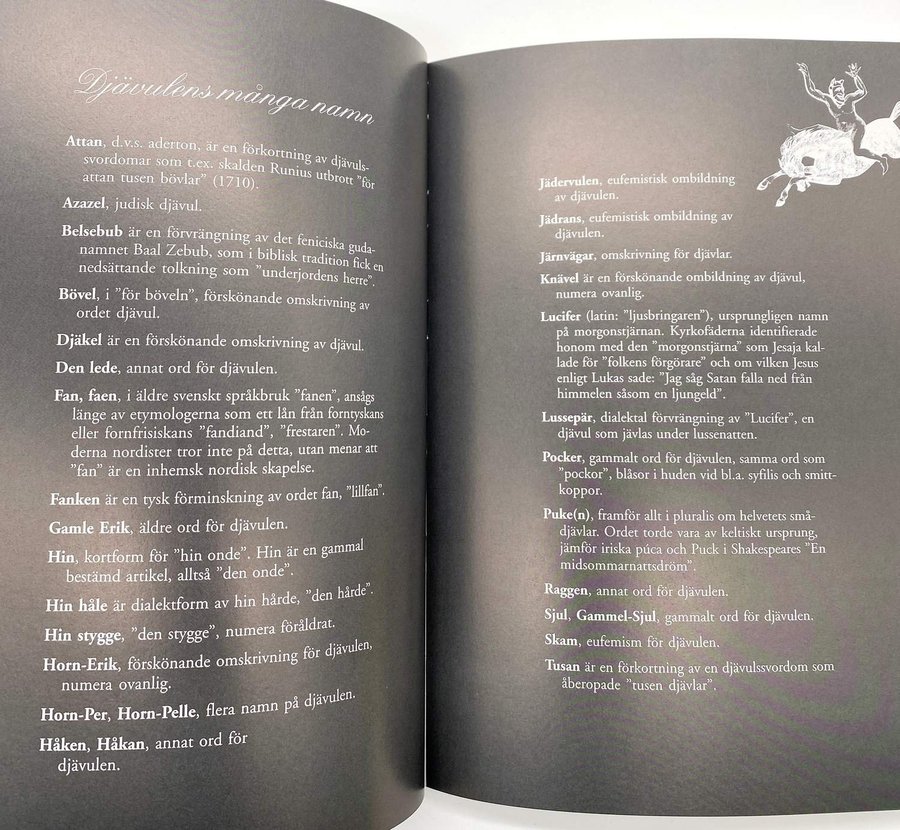 Djävulens många namn
Attan, d.v.s. aderton, är en förkortning av djävuls-
svordomar som t.ex. skalden Runius utbrott ”för
attan tusen bövlar” (1710).
Azazel, judisk djävul.
Belsebub är en förvrängning av det feniciska guda-
namnet Baal Zebub, som i biblisk tradition fick en
nedsättande tolkning som ”underjordens herre”.
Bövel, i ”för böveln”, förskönande omskrivning av
ordet djävul.
Djäkel är en förskönande omskrivning av djävul.
Den lede, annat ord för djävulen.
Fan, faen, i äldre svenskt språkbruk ”fanen”, ansågs
länge av etymologerna som ett lån från forntyskans
eller fornfrisiskans ”fandiand”, ”frestaren”. Mo-
derna nordister tror inte på detta, utan menar att
”fan” är en inhemsk nordisk skapelse.
Fanken är en tysk förminskning av ordet fan, ”lillfan”.
Gamle Erik, äldre ord för djävulen.
Hin, kortform för ”hin onde”. Hin är en gammal
bestämd artikel, alltså ”den onde”.
Hin håle är dialektform av hin hårde, ”den hårde”.
Hin stygge, ”den stygge”, numera föråldrat.
Horn-Erik, förskönande omskrivning för djävulen,
numera ovanlig.
Horn-Per, Horn-Pelle, flera namn på djävulen.
Håken, Håkan, annat ord för
djävulen.
Jädervulen, eufemistisk ombildning
av djävulen.
Jädrans, eufemistisk ombildning av
djävulen.
Järnvägar, omskrivning för djävlar.
Knävel är en förskönande ombildning av djävul,
numera ovanlig.
Lucifer (latin: ”ljusbringaren”), ursprungligen namn
på morgonstjärnan. Kyrkofäderna identifierade
honom med den ”morgonstjärna” som Jesaja kal-
lade för ”folkens förgörare” och om vilken Jesus
enligt Lukas sade: ”Jag såg Satan falla ned från
himmelen såsom en ljungeld”.
Lussepär, dialektal förvrängning av ”Lucifer”, en
djävul som jävlas under lussenatten.
Pocker, gammalt ord för djävulen, samma ord som
”pockor”, blåsor i huden vid bl.a. syfilis och smitt-
koppor.
Puke(n), framför allt i pluralis om helvetets små-
djävlar. Ordet torde vara av keltiskt ursprung,
jämför iriska púca och Puck i Shakespeares ”En
midsommarnattsdröm”.
Raggen, annat ord för djävulen.
Sjul, Gammel-Sjul, gammalt ord för djävulen.
Skam, eufemism för djävulen.
Tusan är en förkortning av en djävulssvordom som
åberopade ”tusen djävlar”.